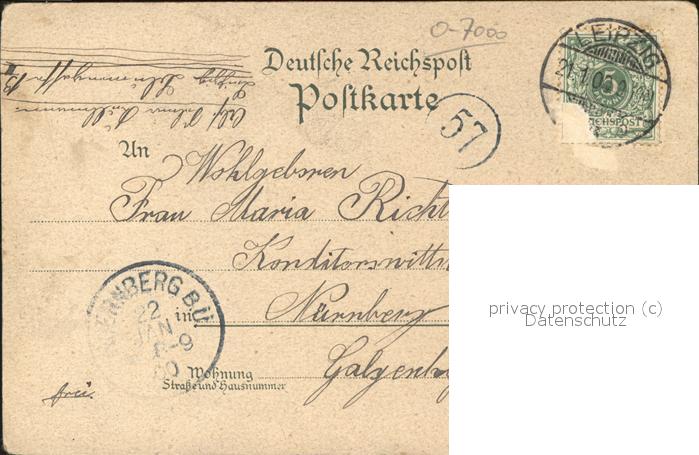 O-7000
Deutsche Reichspost
Postkarte
LEIPZIG
21.1.00
5
REICHSPOST
57
An
Wohlgeboren
Frau Maria Richt
Konditorswittw
in Nürnberg
Wohnung
Straße und Hausnummer
Galgenho
frei.
NÜRNBERG B.Ü.
22
JAN
8-9
00
privacy protection (c)
Datenschutz